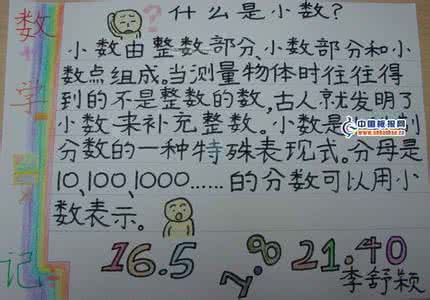 数学日记
什么是小数?
小数由整数部分、小数部分和小
数点组成。当测量物体时往往得
到的不是整数的数,古人就发明了
小数来补充整数。小数是
分数的一种特殊表现式。分母是
10,100,1000……的分数可以用小
数表示。
16.5
7.8
21.40
李舒颖
中国板报网